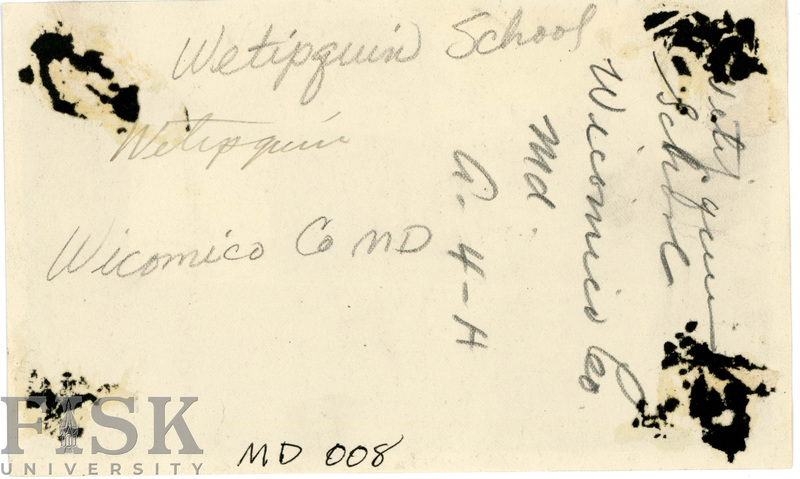 Wetipquin School
Wetipquin
Wicomico Co MD
Wetipquin
School
Wicomico Co
Md.
A. 4-A
MD 008
FISK
UNIVERSITY